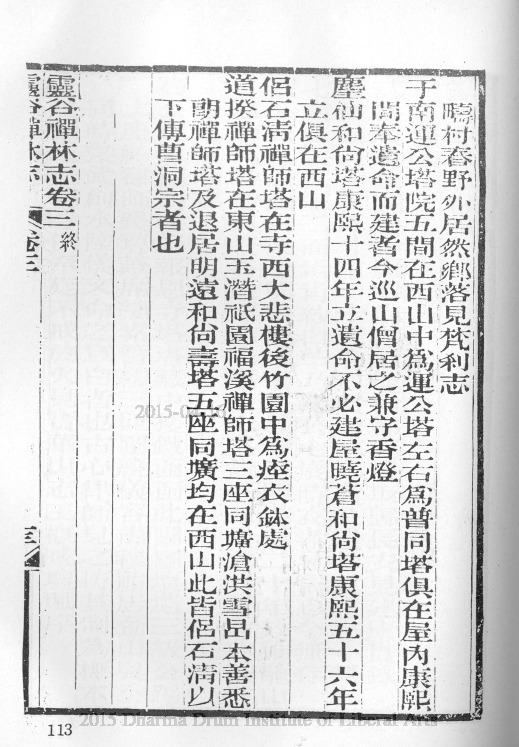 疇村春野外居然鄉落見梵刹志
于南運公塔院五間在西山中爲運公塔左右爲普同塔俱在屋內康熙
間奉遺命而建者今巡山僧居之兼守香燈
塵仙和尙塔康熙十四年立遺命不必建屋曉蒼和尙塔康熙五十六年
立俱在西山
侶石淸禪師塔在寺西大悲樓後竹園中爲瘞衣鉢處
道揆禪師塔在東山玉潛祇園福溪禪師塔三座同壙滄洪雪嵒本善悉
朗禪師塔及退居明遠和尙壽塔五座同壙均在西山此皆侶石淸以
下傳曹洞宗者也
靈谷禪林志卷三 終
靈谷禪林志 卷三
113
2015 Dharma Drum Institute of Liberal Arts